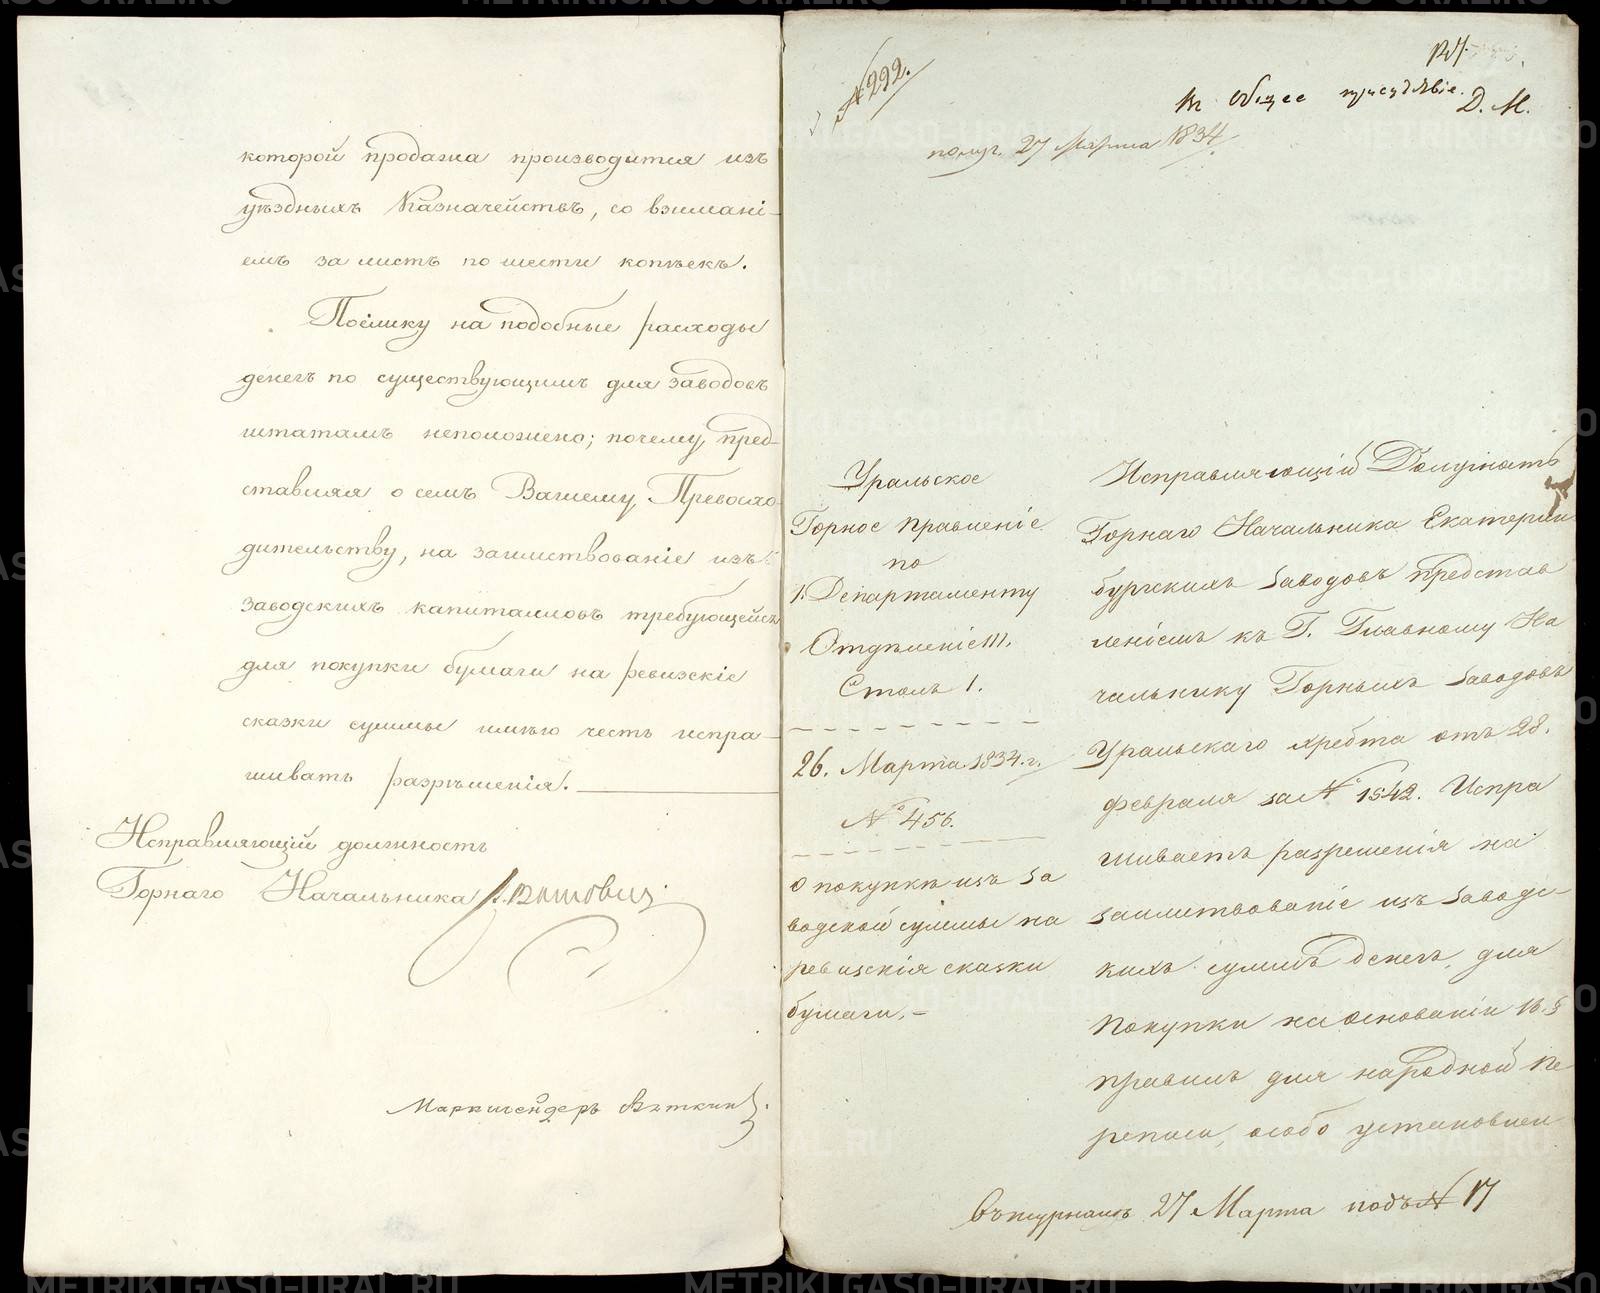 которой продажа производится изъ
уѣздныхъ Казначействъ, со взимані-
емъ за листъ по шести копѣекъ.
Поелику на подобные расходы
денегъ по существующимъ для заводовъ
штатамъ неположено; почему, пред-
ставляя о семъ Вашему, Превосхо-
дительству, на заимствованіе изъ
заводскихъ капиталовъ требующейся
для покупки бумаги на ревизскіе
сказки суммы имѣю честь испра-
шивать разрѣшенія.
Исправляющій должность
Горнаго Начальника
Маркшейдеръ Вяткинъ.
№ 292.
Въ общее присудствіе. Д. М.
получ. 27 Марта 1834
Уральское
Горное Правленіе
по
1. Департаменту
Отдѣленіе III.
Столъ 1.
26. Марта 1834. г.
№ 456.
О покупкѣ изъ за
водской суммы на
ревизскія сказки
бумаги.
Исправляющій Должность
Горнаго Начальника Екатерин
бургскихъ Заводовъ представ
леніемъ къ Г. Главному На
чальнику Горныхъ Заводовъ
Уральскаго хребта отъ 28.
февраля за № 1542. Испра
шиваетъ разрешенія на
заимствованіе изъ Заводс-
кихъ суммъ денегъ, для
покупки на основаніи 16 §
правилъ для народной пе
реписи, особо установлен
Въ журналъ 27 Марта подъ № 17
METRIKI.GASO-URAL.RU